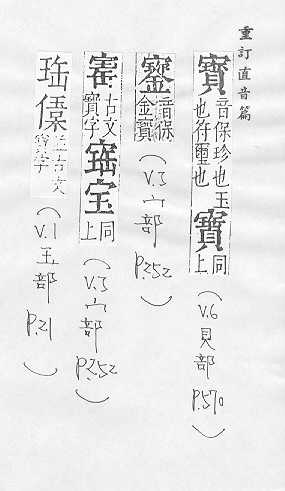 重訂直音篇
寶音保珍也玉也符璽也寳同上(V.6貝部P.570)
音保金寶(V.3宀部P.252)
古文寶字宝同上(V.3宀部P.252)
珤並古文寶字(V.1玉部P.21)